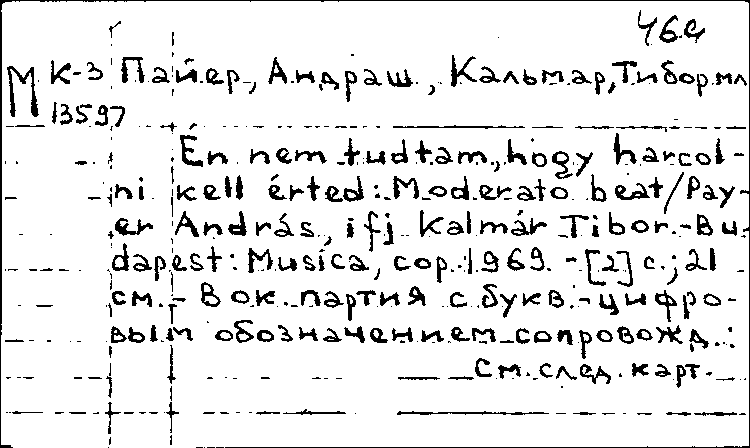 46а
М К-3 Пайер, Андраш, Кальмар, Тибор мл
13597
Én nem tudtam, hogy harcol-
ni kell érted: Moderato beat/Pay-
er András, ifj Kalmár Tibor.-Bu-
dapest: Musica, cop. 1969. -[2] с.; 21
см.- Вок. партия с букв.-цифро-
вым обозначением сопровожд.:
См. след. карт.